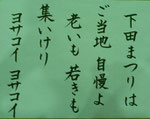 下田まつりは
ご当地 自慢よ
老いも 若きも
集いけり
ヨサコイ ヨサコイ